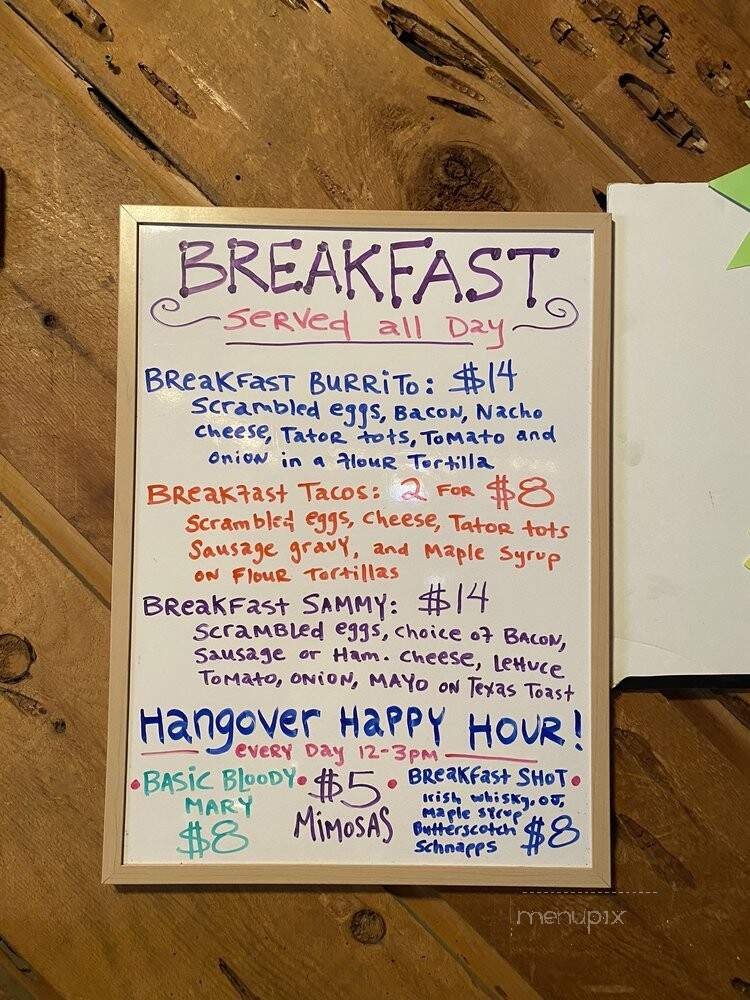 BREAKFAST
Served all Day
BReaKFAST BURRiTo: $14
Scrambled eggs, Bacon, Nacho
cheese, Tator tots, Tomato and
onion in a flour Tortilla
BReakfast Tacos: 2 FOR $8
Scrambled eggs, cheese, Tator tots
Sausage gravy, and Maple Syrup
on Flour Tortillas
BReaKFast SAMMY: $14
Scrambled eggs, choice of Bacon,
Sausage or Ham. cheese, Lettuce
Tomato, onion, MAYO on Texas Toast
Hangover HaPPY HOUR!
eveRY Day 12-3pm
BASiC BLOODY
MARY
$8
$5
MiMOSAS
BReaKfast SHOT
Irish whisky, OJ,
Maple syrup
Butterscotch
Schnapps
$8
menupix